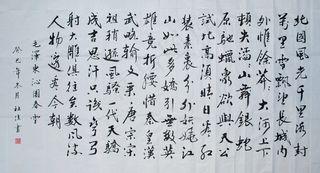 北国风光千里冰封
万里雪飘望长城内
外惟余莽莽大河上下
顿失滔滔山舞银蛇
原驰蜡象欲与天公
试比高须晴日看红
装素裹分外妖娆江
山如此多娇引无数英
雄竞折腰惜秦皇汉
武略输文采唐宗宋
祖稍逊风骚一代天骄
成吉思汗只识弯弓
射大雕俱往矣数风流
人物还看今朝
毛泽东沁园春雪
癸巳年冬月